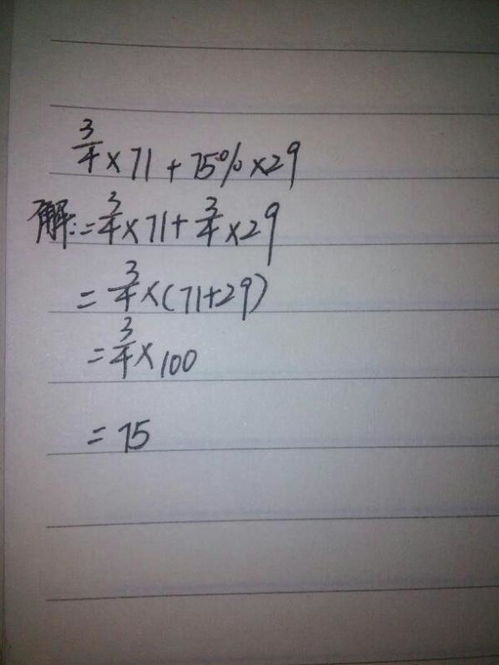 3/4×71+75%×29
解:=3/4×71+3/4×29
=3/4×(71+29)
=3/4×100
=75